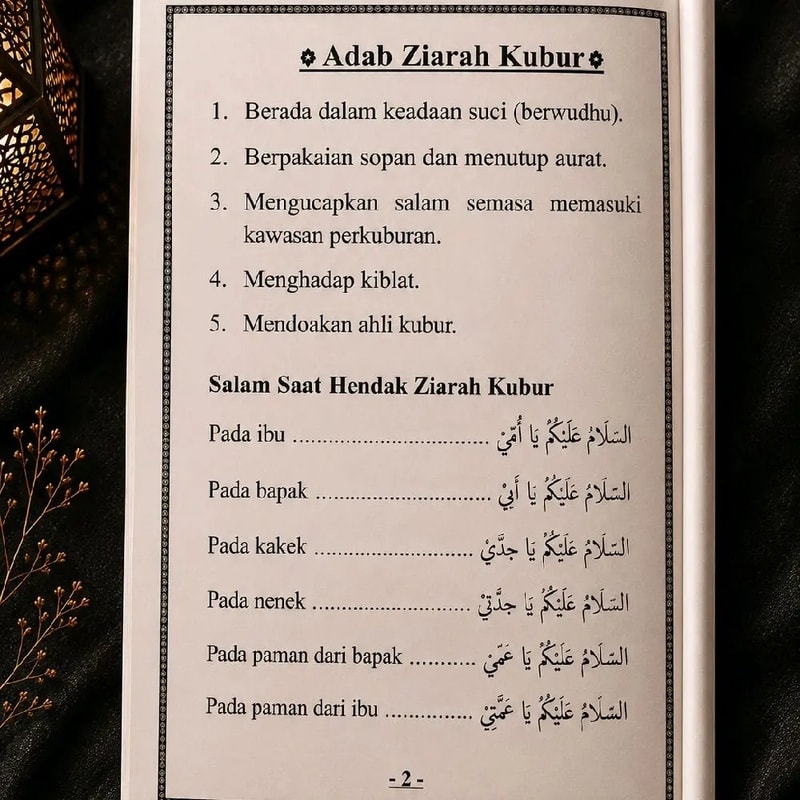 Adab Ziarah Kubur
1. Berada dalam keadaan suci (berwudhu).
2. Berpakaian sopan dan menutup aurat.
3. Mengucapkan salam semasa memasuki
kawasan perkuburan.
4. Menghadap kiblat.
5. Mendoakan ahli kubur.
Salam Saat Hendak Ziarah Kubur
Pada ibu ................................. السَّلَامُ عَلَيْكُمْ يَا أُمِّيْ
Pada bapak .............................. السَّلَامُ عَلَيْكُمْ يَا أَبِيْ
Pada kakek ........................... السَّلَامُ عَلَيْكُمْ يَا جدَّيْ
Pada nenek ........................... السَّلَامُ عَلَيْكُمْ يَا جدَّتِيْ
Pada paman dari bapak ........... السَّلَامُ عَلَيْكُمْ يَا عَمِّيْ
Pada paman dari ibu ............... السَّلَامُ عَلَيْكُمْ يَا عَمَّتِيْ
- 2 -